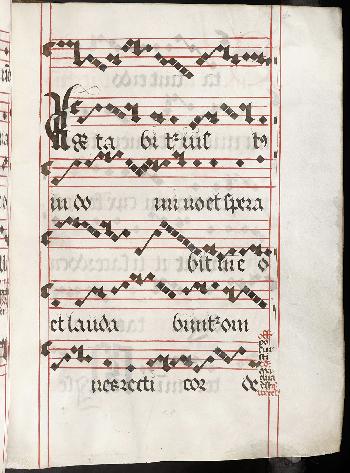 Le ta bit᷑ ius tꝰ
in do mi no et spera
bit in e o
et lauda bunt᷑ om
nes recti cor de